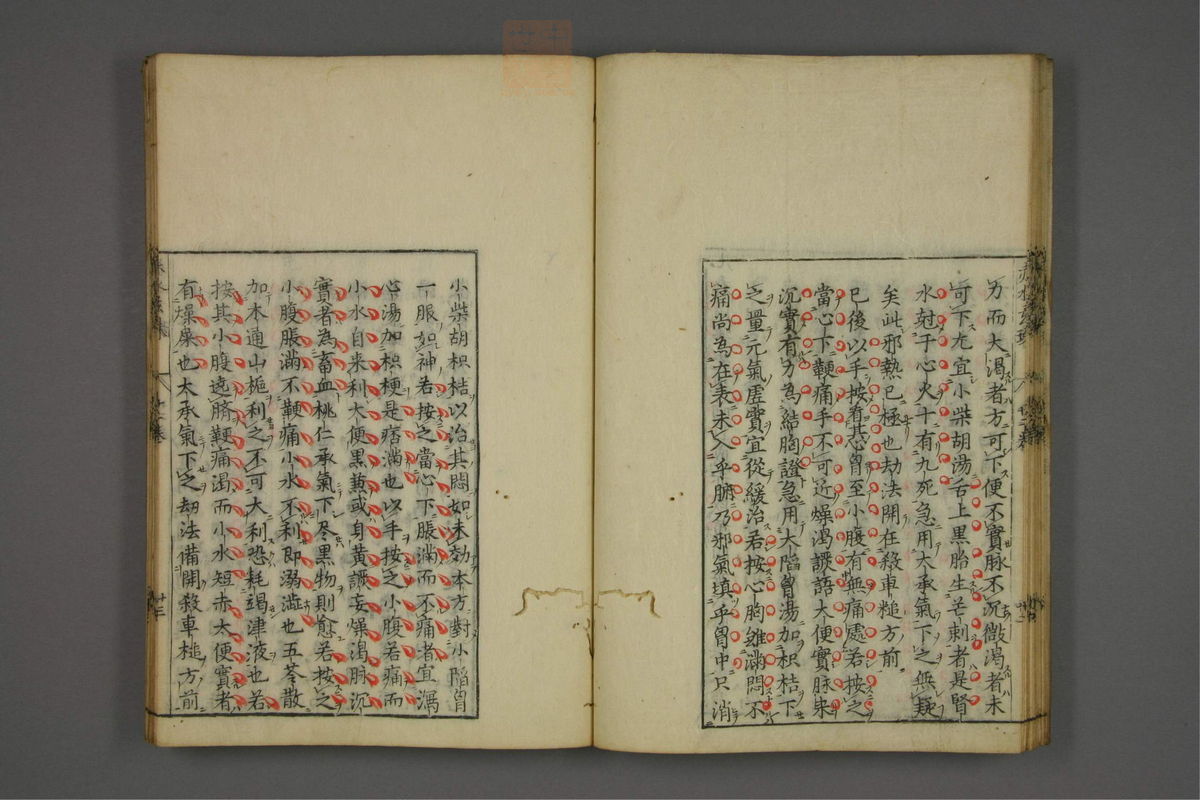 力而大渴者方可下便不實脉不沉微渴者未
可下尤宜小柴胡湯舌上黒胎生芒刺者是腎
水尅于心火十有九死急用大承氣下之無疑
矣此邪熱已極也劫法開在殺車槌方前
已後以手按着其心胷至小腹有無痛處若按之
當心下鞕痛手不可近燥渴譫語大便實脉
沉實有力為結胸證急用大陷胷湯加枳桔下
之量元氣虛實宜從緩治若按心胸雖滿悶不
痛尚為在表未入乎腑乃邪氣填乎胷中只消
小柴胡枳桔以治其悶如未効本方對小陷胷
一服如神若按之當心下脹滿而不痛者宜瀉
心湯加枳梗是痞滿也以手按之小腹若痛而
小水自来利大便黒兼或身黃譫妄燥渴脉沉
實者為畜血桃仁承氣下尽黒物則愈若按之
小腹脹滿不鞕痛小水不利即溺澁也五苓散
加木通山梔利之不可大利恐耗竭津液也若
按其小腹遶臍鞕痛渴而小水短赤大便實者
有燥屎也大承氣下之劫法備開殺車槌方前